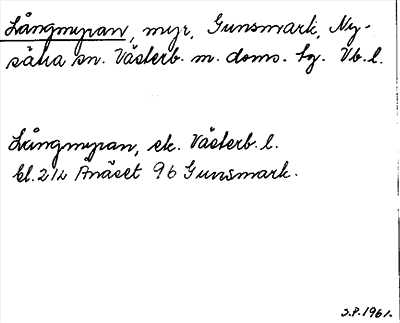 Långmyran, myr, Gunsmark, Ny-
sätra sn. Västerb. m. doms. tg. Vb. l.
Långmyran, ek. Västerb. l.
bl. 214 Ånäset 9b Gunsmark.
S.P. 1961.